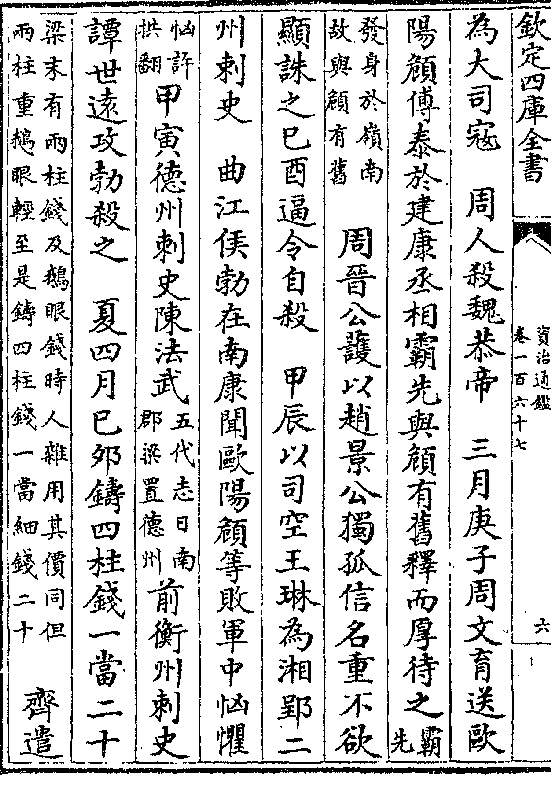 欽定四庫全書
資治通鑑
卷一百六十七
六
為大司寇　周人殺魏恭帝　三月庚子周文育送歐
陽頠傅泰於建康丞相霸先與頠有舊釋而厚待之霸先
發身於嶺南故與頠有舊　周晉公護以趙景公獨孤信名重不欲
顯誅之己酉逼令自殺　甲辰以司空王琳為湘郢二
州刺史　曲江侯勃在南康聞歐陽頠等敗軍中恟懼
恟許拱翻甲寅德州刺史陳法武五代志日南郡梁置德州前衡州刺史
譚世遠攻勃殺之　夏四月己卯鑄四柱錢一當二十
梁末有兩柱錢及鵝眼錢時人雜用其價同但兩柱重鵝眼輕至是鑄四柱錢一當細錢二十　齊遣